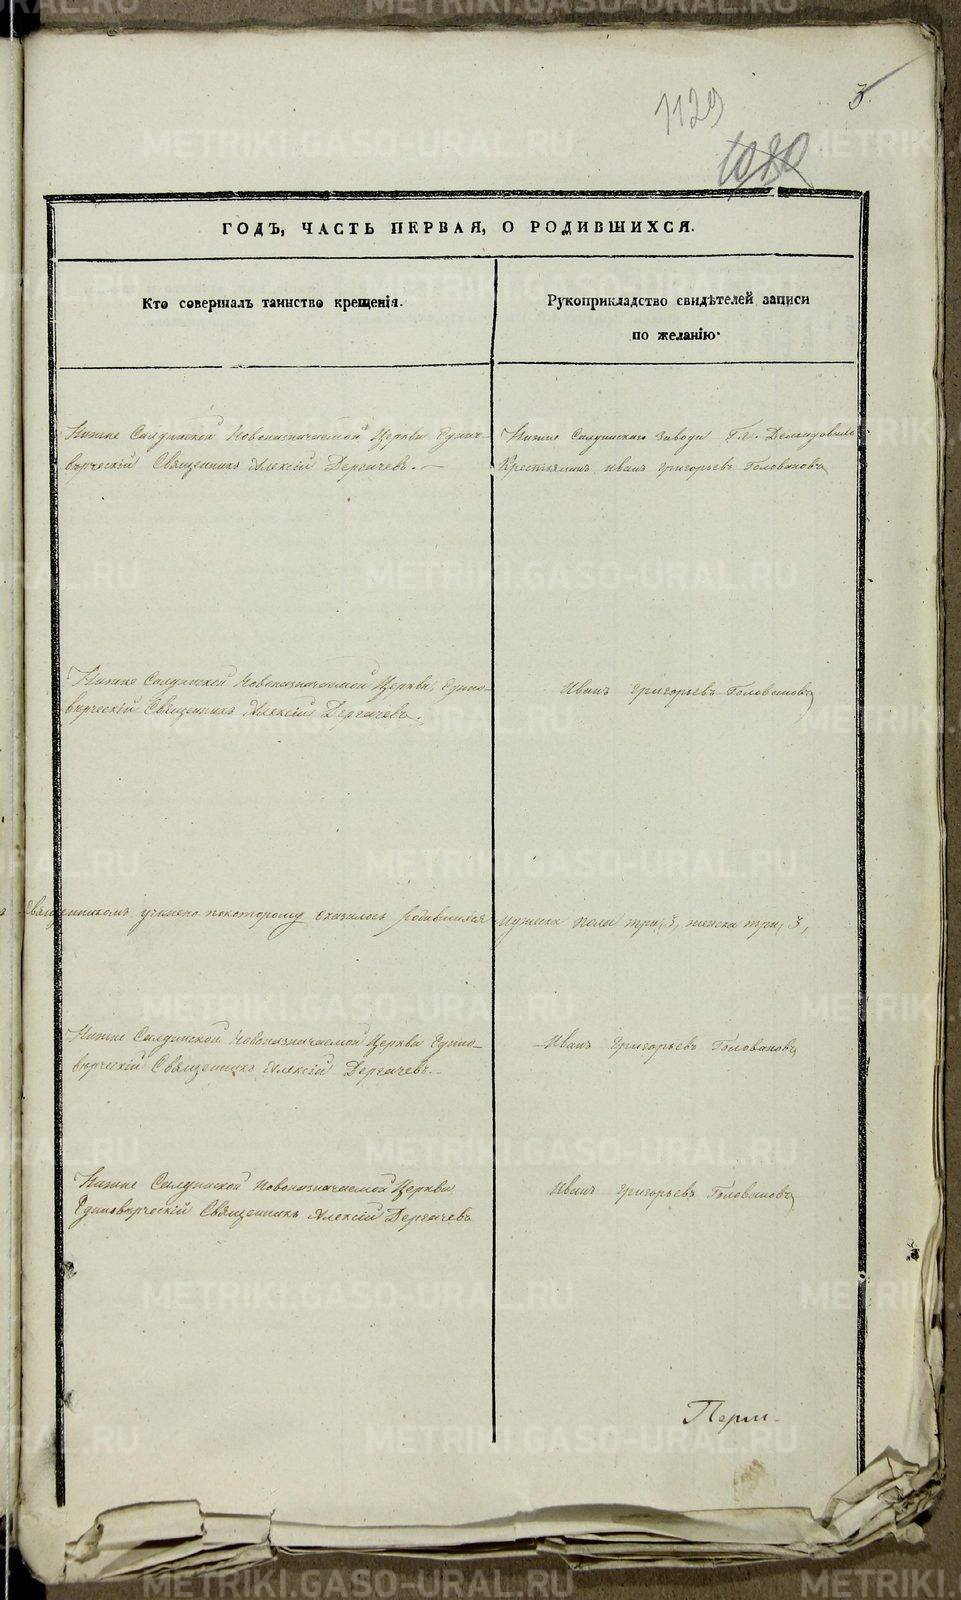 3.
1129
1080
ГОДЪ, ЧАСТЬ ПЕРВАЯ, О РОДИВШИХСЯ.
Кто совершалъ таинство крещенія.
Рукоприкладство свидѣтелей записи
по желанію.
Нижне Салдинской Новоназначаемой Церкви Едино-
вѣрческій Священникъ Алексій Дергачевъ.
Нижне Салдинскаго Завода Г.г. Демидовыхъ
Крестьянинъ Иванъ Григорьевъ Головановъ
Нижне Салдинской Новоназначаемой Церкви, Едино-
вѣрческій Священникъ Алексій Дергачевъ.
Иванъ Григорьевъ Головановъ
Священникомъ учинено по которому оказалось родившихся мужска пола три, 3, женска три, 3,
Нижне Салдинской Новоназначаемой Церкви Едино-
вѣрческій Священникъ Алексій Дергачевъ.
Иванъ Григорьевъ Головановъ
Нижне Салдинской Новоназначаемой Церкви
Единовѣрческій Священникъ Алексій Дергачевъ
Иванъ Григорьевъ Головановъ
METRIKI.GASO-URAL.RU